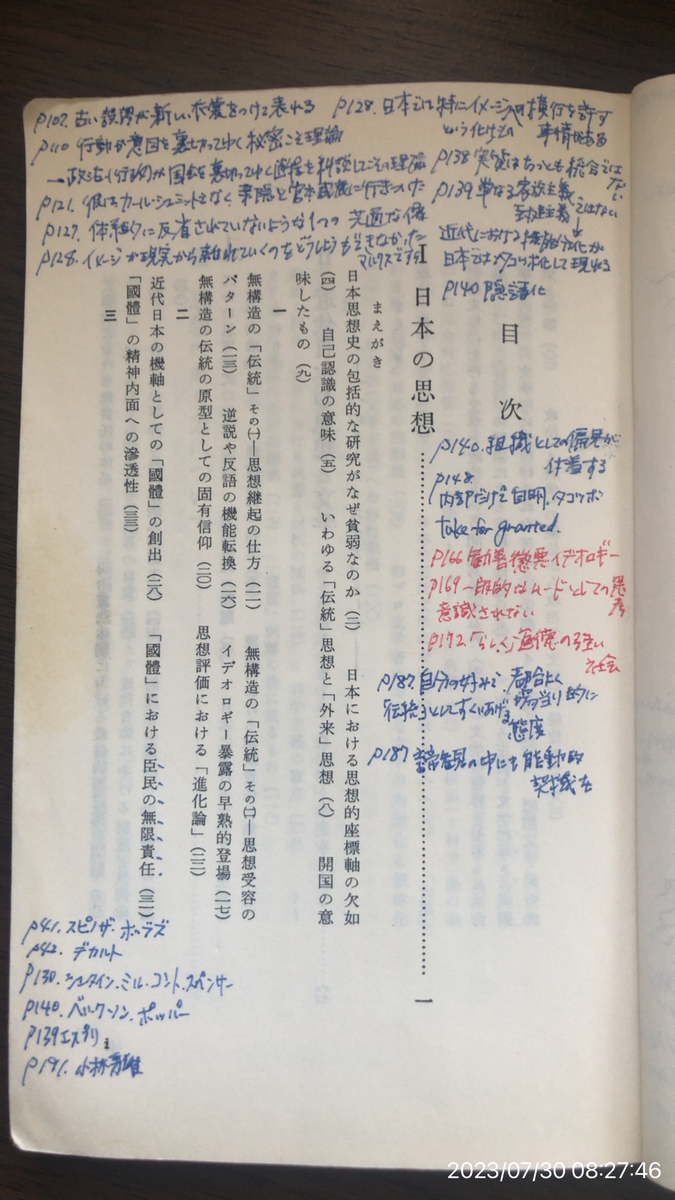 目次
I 日本の思想……………一
まえがき
日本思想史の包括的な研究がなぜ貧弱なのか（二）―― 日本における思想的座標軸の欠如
（四） 自己認識の意味（五） いわゆる「伝統」思想と「外来」思想（八） 開国の意
味したもの（九）
一
無構造の「伝統」その㈠―思想継起の仕方（一一） 無構造の「伝統」その㈡―思想受容の
パターン（一三） 逆説や反語の機能転換（一六） イデオロギー暴露の早熟的登場（一七）
無構造の伝統の原型としての固有信仰（二〇） 思想評価における「進化論」（二三）
二
近代日本の機軸としての「國體」の創出（二八） 「國體」における臣民の無限責任（三一）
「國體」の精神内面への滲透性（三三）
三
p107. 古い誤謬が新しい衣装をつけて表れる
p110 行動が意図を裏切ってゆく秘密こそ理論
p121.
p127. 体系的に反省されていないような1つの
p128. イメージが現実から離れていくのをどうしようもできなかった
マルクスですら
p128. 日本では特にイメージの横行を許す
という化けもの 事情がある
p138 実質はちっとも統合ではない
p139 単なる家族主義
ではない
近代における機能分化が
日本ではタコツボ化して現れる
p140 隠語化
p140. 組織としての偏見が
付着する
p148.
内部だけで自明. タコツボ
take for granted.
p166 勧善懲悪イデオロギー
p169 一段的はムードとしての
意識されない
p172 「らしく」道徳の強い
社会
p187. 自分の好みで、都合よく
伝統としてすくいあげる 場当り的に
態度
p187 の中にも能動的
契機を
p41. スピノザ. ホッブズ
p42. デカルト
p130. シュタイン. ミル. コント. スペンサー
p140. ベルクソン. ポッパー
p139 エスプリ
p191. 小林秀雄
2023/07/30 08:27:46